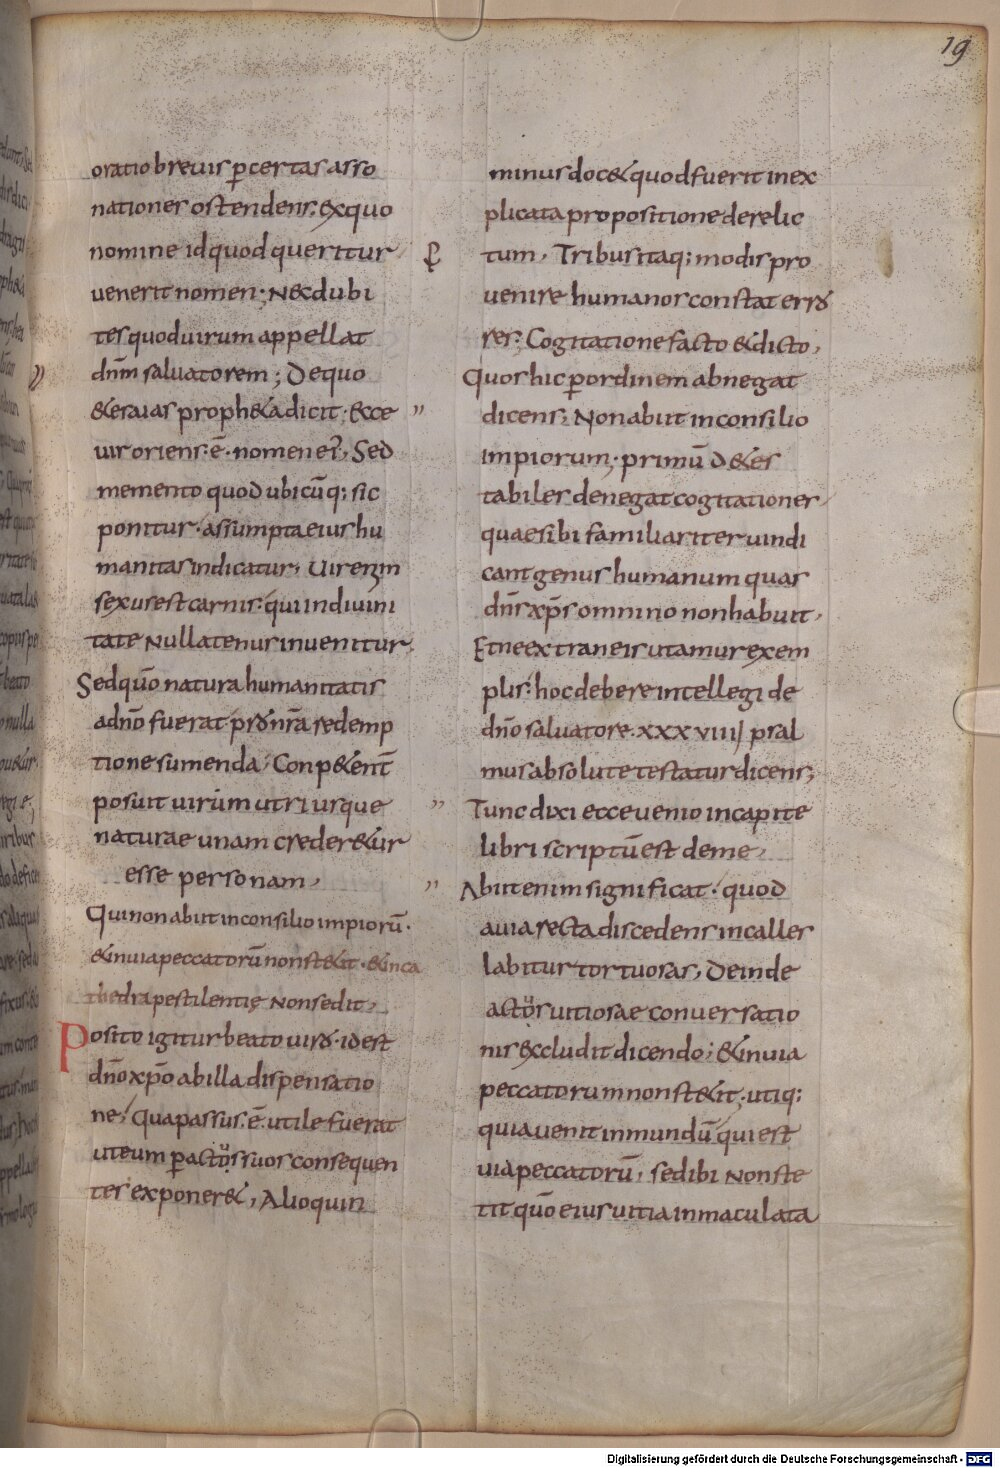 19
oratio breuis ꝑ certas asso
nationes ostendens; ex quo
nomine id quod queritur
uenerit nomen; Nec dubi
tes quod uirum appellat
dnm̄ saluatorem; De quo
& esaias proph&a dicit · Ecce
uir oriens · ē · nomen ei᾿, Sed
memento quod ubicūq; sic
ponitur · assumpta eius hu
manitas indicatur, Uir enim
sexus est carnis · qui in diuini
tate nullatenus inuenitur,
Sed qūo natura humanitatis
a dnō fuerat ꝓ nr̄a redemp
tione sumenda / Conpetent̄
posuit uirum ut ri usque
naturae unam creder&ur
esse personam,
Qui non abiit in consilio impiorū ·
& in uia peccatorū non st&it · & in ca
thedra pestilentię non sedit,
Posito igitur beato uiro · id est
dnō xp̄o ab illa dispensatio
ne / Qua passus · ē · utile fuerat
ut eum ꝑ actus suos consequen
ter exponer&, Alioquin
minus doc& quod fuerit inex
plicata propositione derelic
tum, Tribus itaq; modis pro
uenire humanos constat erro
res; Cogitatione facto & dicto,
Quos hic ꝑ ordinem abnegat
dicens; Non abiit in consilio
impiorum, · primū d&es
tabiles denegat cogitationes,
quae sibi familiariter uindi
cant genus humanum quas
dn̄s xp̄s omnino non habuit,
Et ne extraneis utamur exem
plis · hoc debere intellegi de
dnō saluatore · XXXVIIII psal
mus absolute testatur dicens;
Tunc dixi ecce uenio in capite
libri scriptū est de me,
Abiit enim significat · quod
a uia recta discedens in calles
labitur tortuosas, Deinde
actus uitiosae conuersatio
nis excludit dicendo; & in uia
peccatorum non st&it, utiq:
quia uenit in mundū qui est
uia peccatorū, sed ibi non ste
tit qūo eius uitia inmaculata
Digitalisierung gefördert durch die Deutsche Forschungsgemeinschaft - DFG